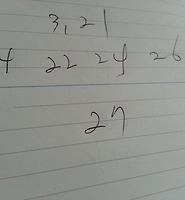 3, 21
4 22 24 26
27